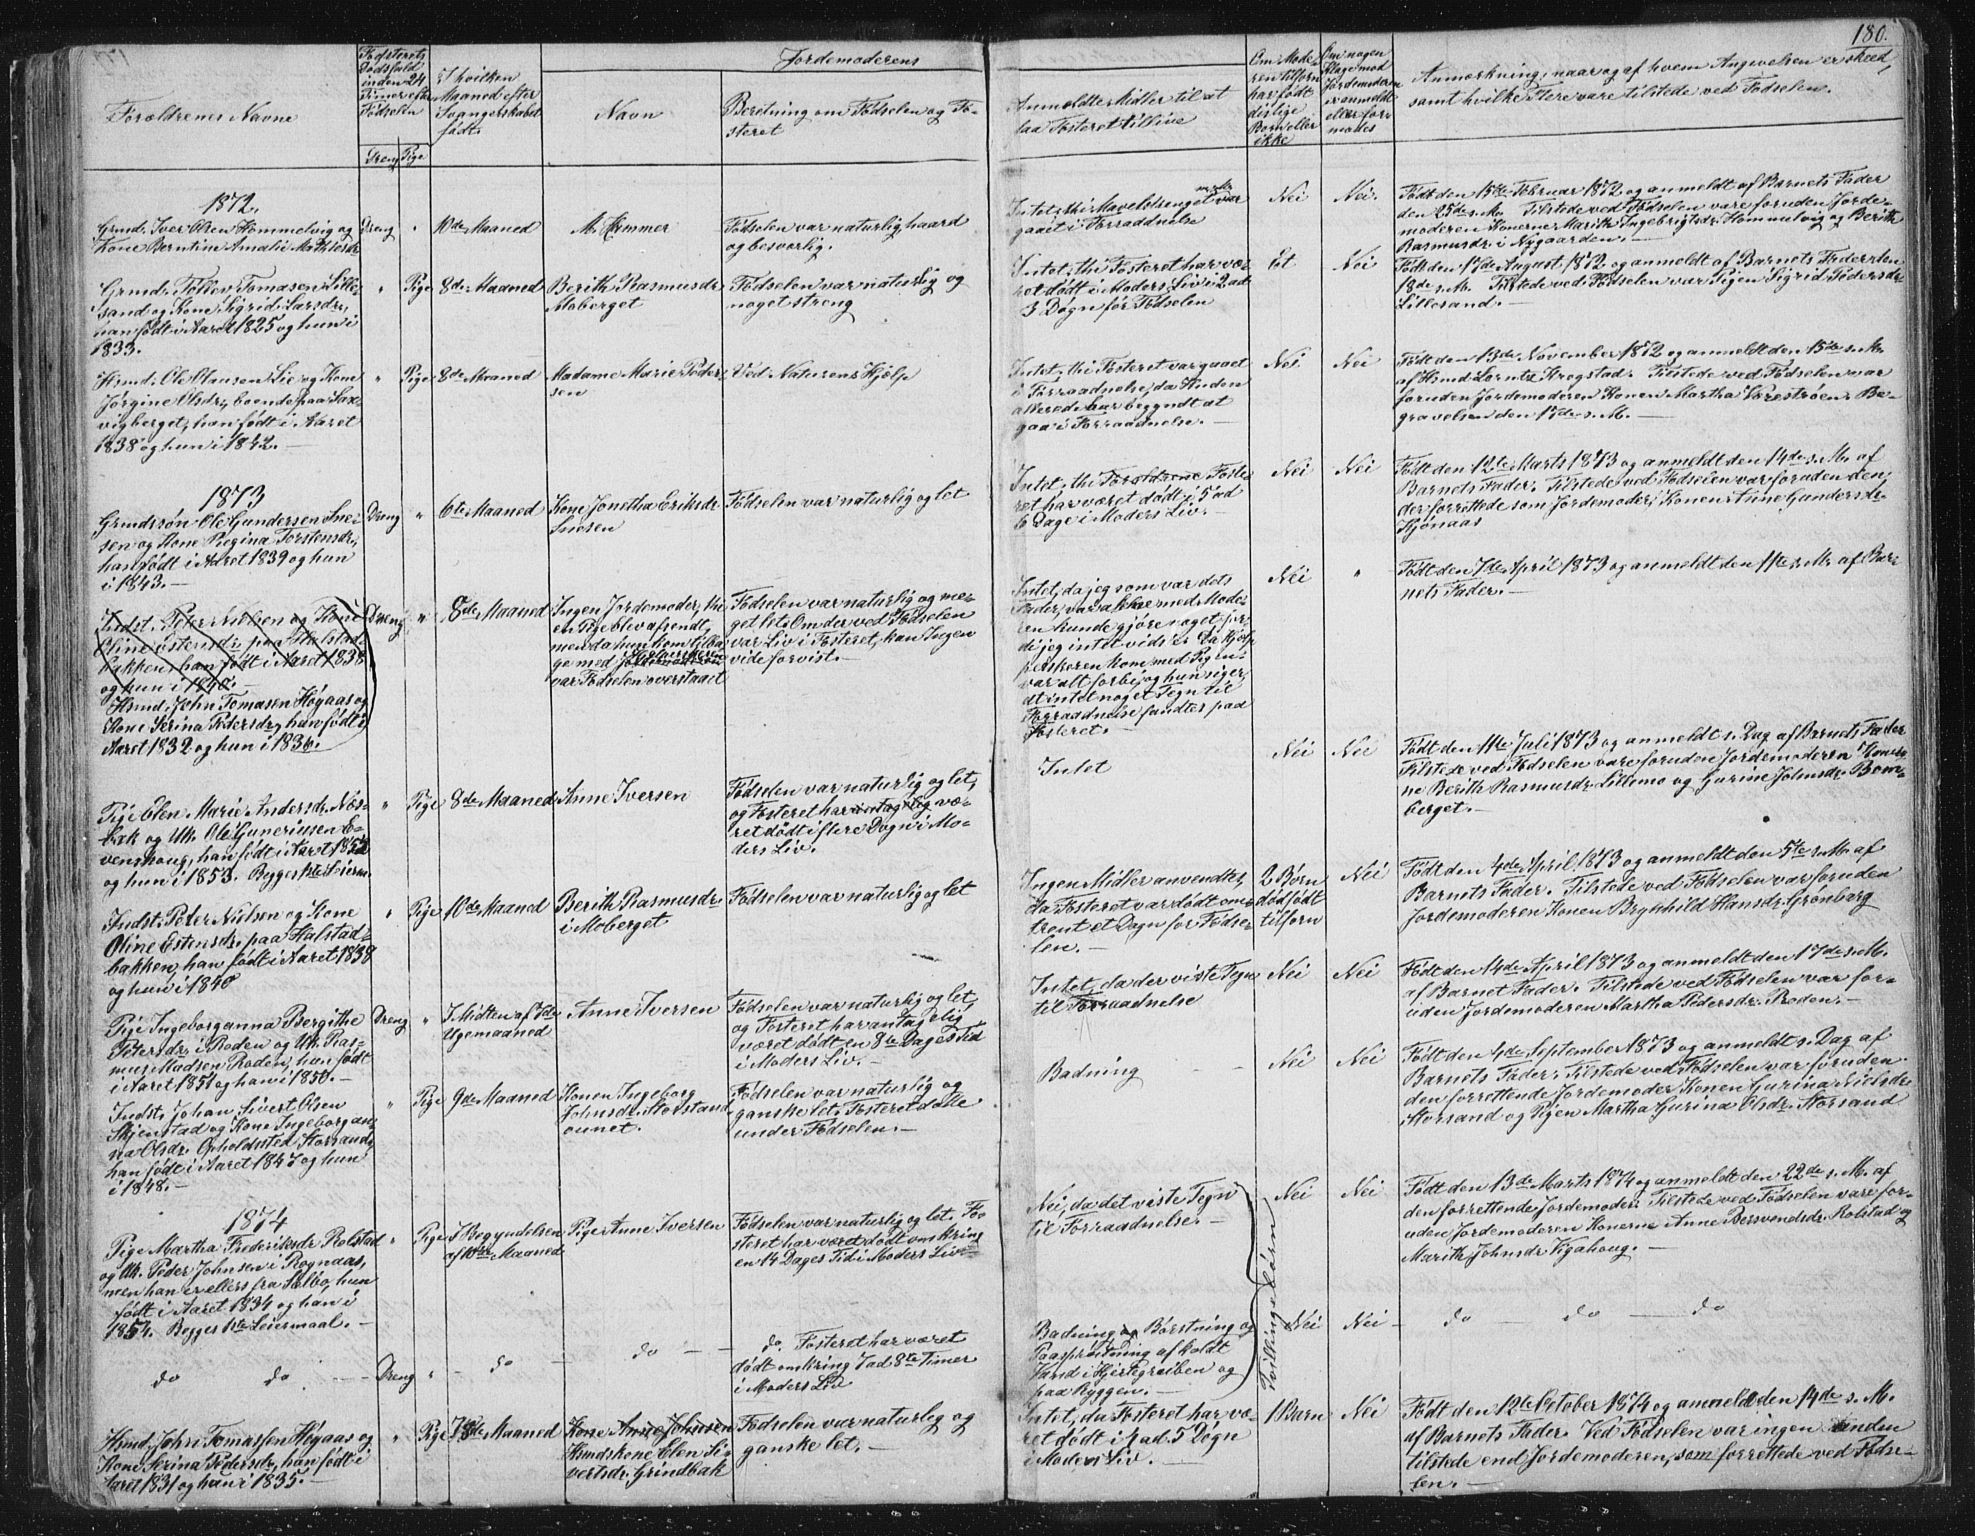 180.
Forældrenes Navne
Fosterets
Dødsfald
inden 24
Timer efter
Fødselen
Dreng
Pige
I hvilken
Maaned efter
Svangerskabet
født.
Jordemoderens
Navn
Beretning om Fødselen og Fo-
steret
Anvendte Midler til at
faa Fosteret tillive
Om Mode-
ren tilforn
har født
dislige
Børn eller
ikke
Om nogen
Klage mod
Jordemoderen
er anmeldt
eller for-
modes
Anmærkning, naar og af hvem Angivelsen er skeed,
samt hvilke flere vare tilstede ved Fødselen.
1872.
Grmd. Iver Olsen Hommelvig og
Kone Berntine Amalie Mathisdr.
Dreng
"
10de Maaned
M. Hammer
Fødselen var naturlig haard
og besværlig.
Intet, thi Mavelstrenget var
gaaet i Forraadnelse
Nei
Nei.
Født den 15de Februar 1872 og anmeldt af Barnets Fader
den 25de s. M. Tilstede ved Fødselen vare foruden Jorde-
moderen Konerne Marith Ingebrigtsdr. Hommelvig og Berith
Rasmusdr. i Nygaarden. —
Grmd. Tollev Tomasen Lille-
sand og Kone Sigrid Larsdr.,
han født i Aaret 1825 og hun i
1833.
"
Pige
8de Maaned
Berith Rasmusdr.
Moberget
Fødselen var naturlig og
noget streng
Intet, thi Fosteret har væ-
ret dødt i Moders Liv i 2 ad
3 Døgn før Fødselen
Et
Nei
Født den 17de August 1872 og anmeldt af Barnets Fader den
18de s. M. Tilstede ved Fødselen var Pigen Sigrid Pedersdr.
Lillesand. —
Hsmd. Ole Olausen Lie og Kone
Jørgine Olsdr., boende paa Sax-
vigberget, han født i Aaret
1838 og hun i 1842. —
"
Pige
8de Maaned
Madame Marie Peder-
sen
Ved Naturens Hjælp
Intet, thi Fosteret var gaaet
i Forraadnelse, da Huden
allerede har begyndt at
gaa i Forraadnelse. —
Nei
Nei
Født den 13de November 1872 og anmeldt den 15de s. M.
af Hsmd. Lorntz Krogstad. Tilstede ved Fødselen var
foruden Jordemoderen Konen Martha Verestrøen. Be-
gravelsen den 17de s. M. —
1873
Grmdssøn Ole Gundersen Sne-
sen og Kone Regina Torstensdr.,
han født i Aaret 1839 og hun
i 1843. —
Dreng
"
6te Maaned
Kone Jonetha Eriksdr.
Snesen
Fødselen var naturlig og let
Intet, thi Forældrene Foste-
ret har været dødt i 5 ad
6 Dage i Moders Liv. —
Nei
Nei
Født den 12te Marts 1873 og anmeldt den 14de s. M. af
Barnets Fader. Tilstede ved Fødselen var foruden den,
der forrettede som Jordemoder, Konen Anne Gundersdr.
Kjønaas
Indst. Peter Nielsen og Kone
Oline Estensdr. paa Halstad-
bakken, han født i Aaret 1838
og hun i 1840.
Hsmd. John Tomasen Høgaas og
Kone Serina Pedersdr., han født i
Aaret 1832 og hun i 1836.
Dreng
"
8de Maaned
Ingen Jordemoder, thi
en Pige blev afsendt,
men da hun kom tilba-
ge med
var Fødselen overstaaet
Fødselen var naturlig og me-
get let. Om der ved Fødselen
var Liv i Fosteret, kan Ingen
vide for vist. —
Intet, da jeg som var dets
Fader, var alene med Mode-
ren kunde gjøre noget, for-
di jeg intet vidste. Da Hjæl-
persken kom med Pigen
var alt forbi, og hun siger,
at intet noget Tegn til
Forraadnelse fandtes paa
Fosteret. —
Nei
"
Født den 7de April 1873 og anmeldt den 11te s. M. af Bar-
nets Fader. —
Pige Elen Marie Andersdr. Næs-
bak og Uk. Ole Guneriussen E-
venshoug, han født i Aaret 1852
og hun i 1853. Begges 1ste Leierm.
"
Pige
8de Maaned
Anne Iversen
Fødselen var naturlig og let,
og Fosteret har antagelig væ-
ret dødt i flere Døgn i Mo-
ders Liv.
Intet
Nei
Nei
Født den 11te Juli 1873 og anmeldt s. Dag af Barnets Fader
Tilstede ved Fødselen vare foruden Jordemoderen Koner-
ne Berith Rasmusdr. Lillemo og Gurine Johnsdr. Bom-
berget. —
Indst. Peter Nielsen og Kone
Oline Estensdr. paa Halstad-
bakken, han født i Aaret 1838
og hun i 1840
"
Pige
10de Maaned
Berith Rasmusdr.
i Moberget
Fødselen var naturlig og let
Ingen Midler anvendtes,
da Fosteret var dødt om-
trent et Døgn før Fødse-
len. —
2 Børn
dødfødt
tilforn
Nei
Født den 4de April 1873 og anmeldt den 5te s. M. af
Barnets Fader. Tilstede ved Fødselen var foruden
Jordemoderen Konen Brynhild Hansdr. Grønberg
Pige Ingeborganna Bergithe
Petersdr. i Roden og Uk. Ras-
mus Madsen Roden, hun født
i Aaret 1851 og han i 1850. —
Dreng
"
I Midten af 7de
Ugemaaned
Anne Iversen
Fødselen var naturlig og let,
og Fosteret har antagelig
været dødt en 8te Dages Tid
i Moders Liv. —
Intet, da der viste Tegn
til Forraadnelse
Nei
Nei
Født den 14de April 1873 og anmeldt den 17de s. M.
af Barnet Fader. Tilstede ved Fødselen var for-
uden Jordemoderen Martha Pedersdr. Roden. —
Indst. Johan Sivert Olsen
Skjenstad og Kone Ingeborgan-
na Olsdr. Opholdssted Storsand,
han født i Aaret 1847 og hun
i 1848. —
"
Pige
9de Maaned
Konen Ingeborg
Johnsdr. Storsand
ounet.
Fødselen var naturlig og
ganske let. Fosteret døde
under Fødselen. —
Badning
Nei
Nei
Født den 4de September 1873 og anmeldt s. Dag af
Barnets Fader. Tilstede ved Fødselen var foruden
den forrettende Jordemoder Konen Gurina Nielsdr.
Storsand og Pigen Martha Gurina Olsdr. Storsand
1874
Pige Martha Frederiksdr. Rolstad
og Uk. Peder Johnsen i Rognaas,
men han er ellers fra Selbo, hun
født i Aaret 1834 og han i
1854. Begges 1ste Leiermaal. —
"
Pige
I Begyndelsen
af 10de Maaned
Pige Anne Iversen
Fødselen var naturlig og let. Fo-
steret har været dødt omkring
en 14 Dages Tid i Moders Liv
Nei, da det viste Tegn
til Forraadnelse. —
Tvillinge Børn
Nei
Nei
Født den 13de Marts 1874 og anmeldt den 22de s. M. af
den forrettende Jordemoder. Tilstede ved Fødselen vare for-
uden Jordemoderen Konerne Anne Bersvendsdr. Rolstad og
Marith Johnsdr. Vigahoug. —
do do
Dreng
"
do
do
do. Fosteret har været
dødt omkring 7 ad 8te Timer
i Moders Liv
Badning og Børstning og
Paasprøitning af koldt
Vand i Hjertegruben og
paa Ryggen. —
Nei
Nei
do do do
Hsmd. John Tomassen Høgaas og
Kone Serina Pedersdr., han født i
Aaret 1831 og hun i 1835. —
"
Pige
8de Maaned
Kone Anne Johnsen
Hsmdskone Elen Si-
vertsdr. Grindbak
Fødselen var naturlig og
ganske let. —
Intet, da Fosteret har væ-
ret dødt i 4 ad 5 Døgn
i Moders Liv.
1 Barn
Nei
Født den 12te October 1874 og anmeldt den 14de s. M.
af Barnets Fader. Ved Fødselen var ingen anden
tilstede end Jordemoderen, som forrettede ved Fødse-
len. —